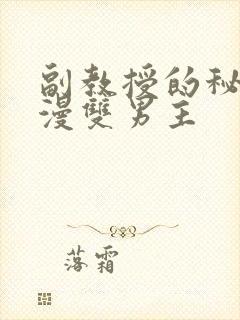 副教授的秘
漫雙男主
落霜